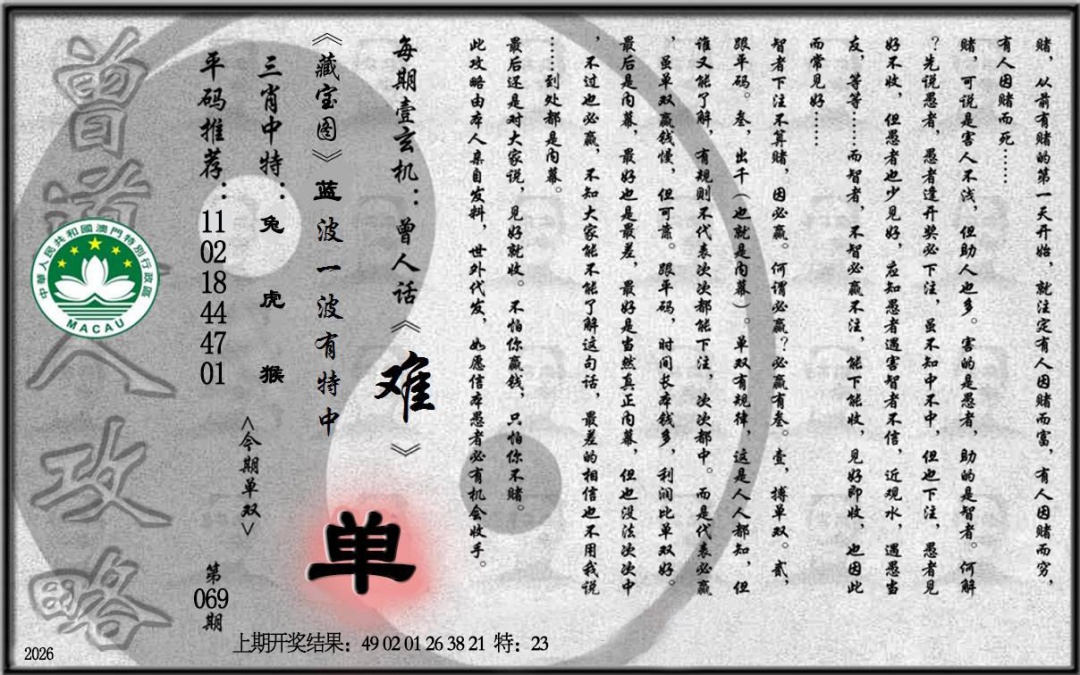 赌，从前有赌的第一天开始，就注定有人因赌而富，有人因赌而穷，
有人因赌而死……
赌，可说是害人不浅，但助人也多。害的是愚者，助的是智者。何解
？先说愚者，愚者逢开奖必下注，虽不知中不中，但也下注，愚者见
好不收，但愚者也少见好，应知愚者遇害智者不信，近观水，遇愚当
友，等等……而智者，不智必赢不注，能下能收，见好即收，也因此
而常见好……
智者下注不算赌，因必赢。何谓必赢？必赢有叁。壹，搏单双。贰，
跟单码。叁，出千（也就是内幕）。单双有规律，这是人人都知，但
谁又能了解，有规则不代表次次都能下注，次次都中。而是代表必赢
，虽单双赢钱慢，但可靠。跟单码，时间长本钱多，利润比单双好。
最后是内幕，最好也是最差，最好是当然真正内幕，但也没法次次中
，不过也必赢，不知大家能不能了解这句话，最差的相信也不用我说
……到处都是内幕。
最后还是对大家说，见好就收。不怕你赢钱，只怕你不赌。
此攻略由本人亲自发料，世外代发，如愿信本愚者必有机会收手。
每期壹玄机：曾人话《难》
《藏宝图》蓝波一波有特中
三肖中特：兔 虎 猴
<今期单双>
单
平码推荐：11 02 18 44 47 01
第069期
曾道人攻略
中華人民共和國澳門特別行政區
MACAU
上期开奖结果：49 02 01 26 38 21 特：23
2026